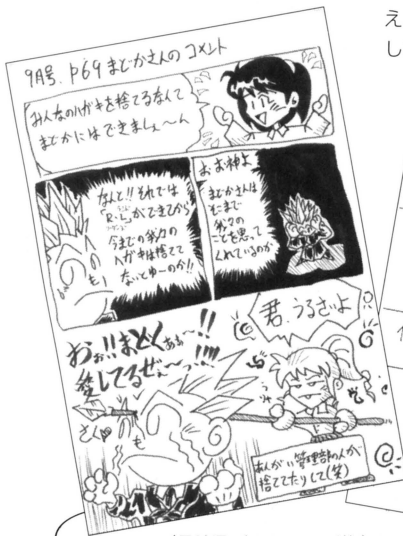 9月号. P69 まどかさんの コメント
みんなのハガキを捨てるなんて
まどかにはできましぇ〜ん
なんと!! それでは
R.L.ができてから
今までの我々の
ハガキは捨てて
ないとゆーのか!!
おお神よ
まどかさんは
そこまで
我々の
ことを思って
くれているのか
おぉ!!まどくあぁ〜!!
愛してるぜぇ〜っ!!!
さくっ
君、うるさいよ
あんがい管理部の人が
捨ててたりして(笑)
え
し